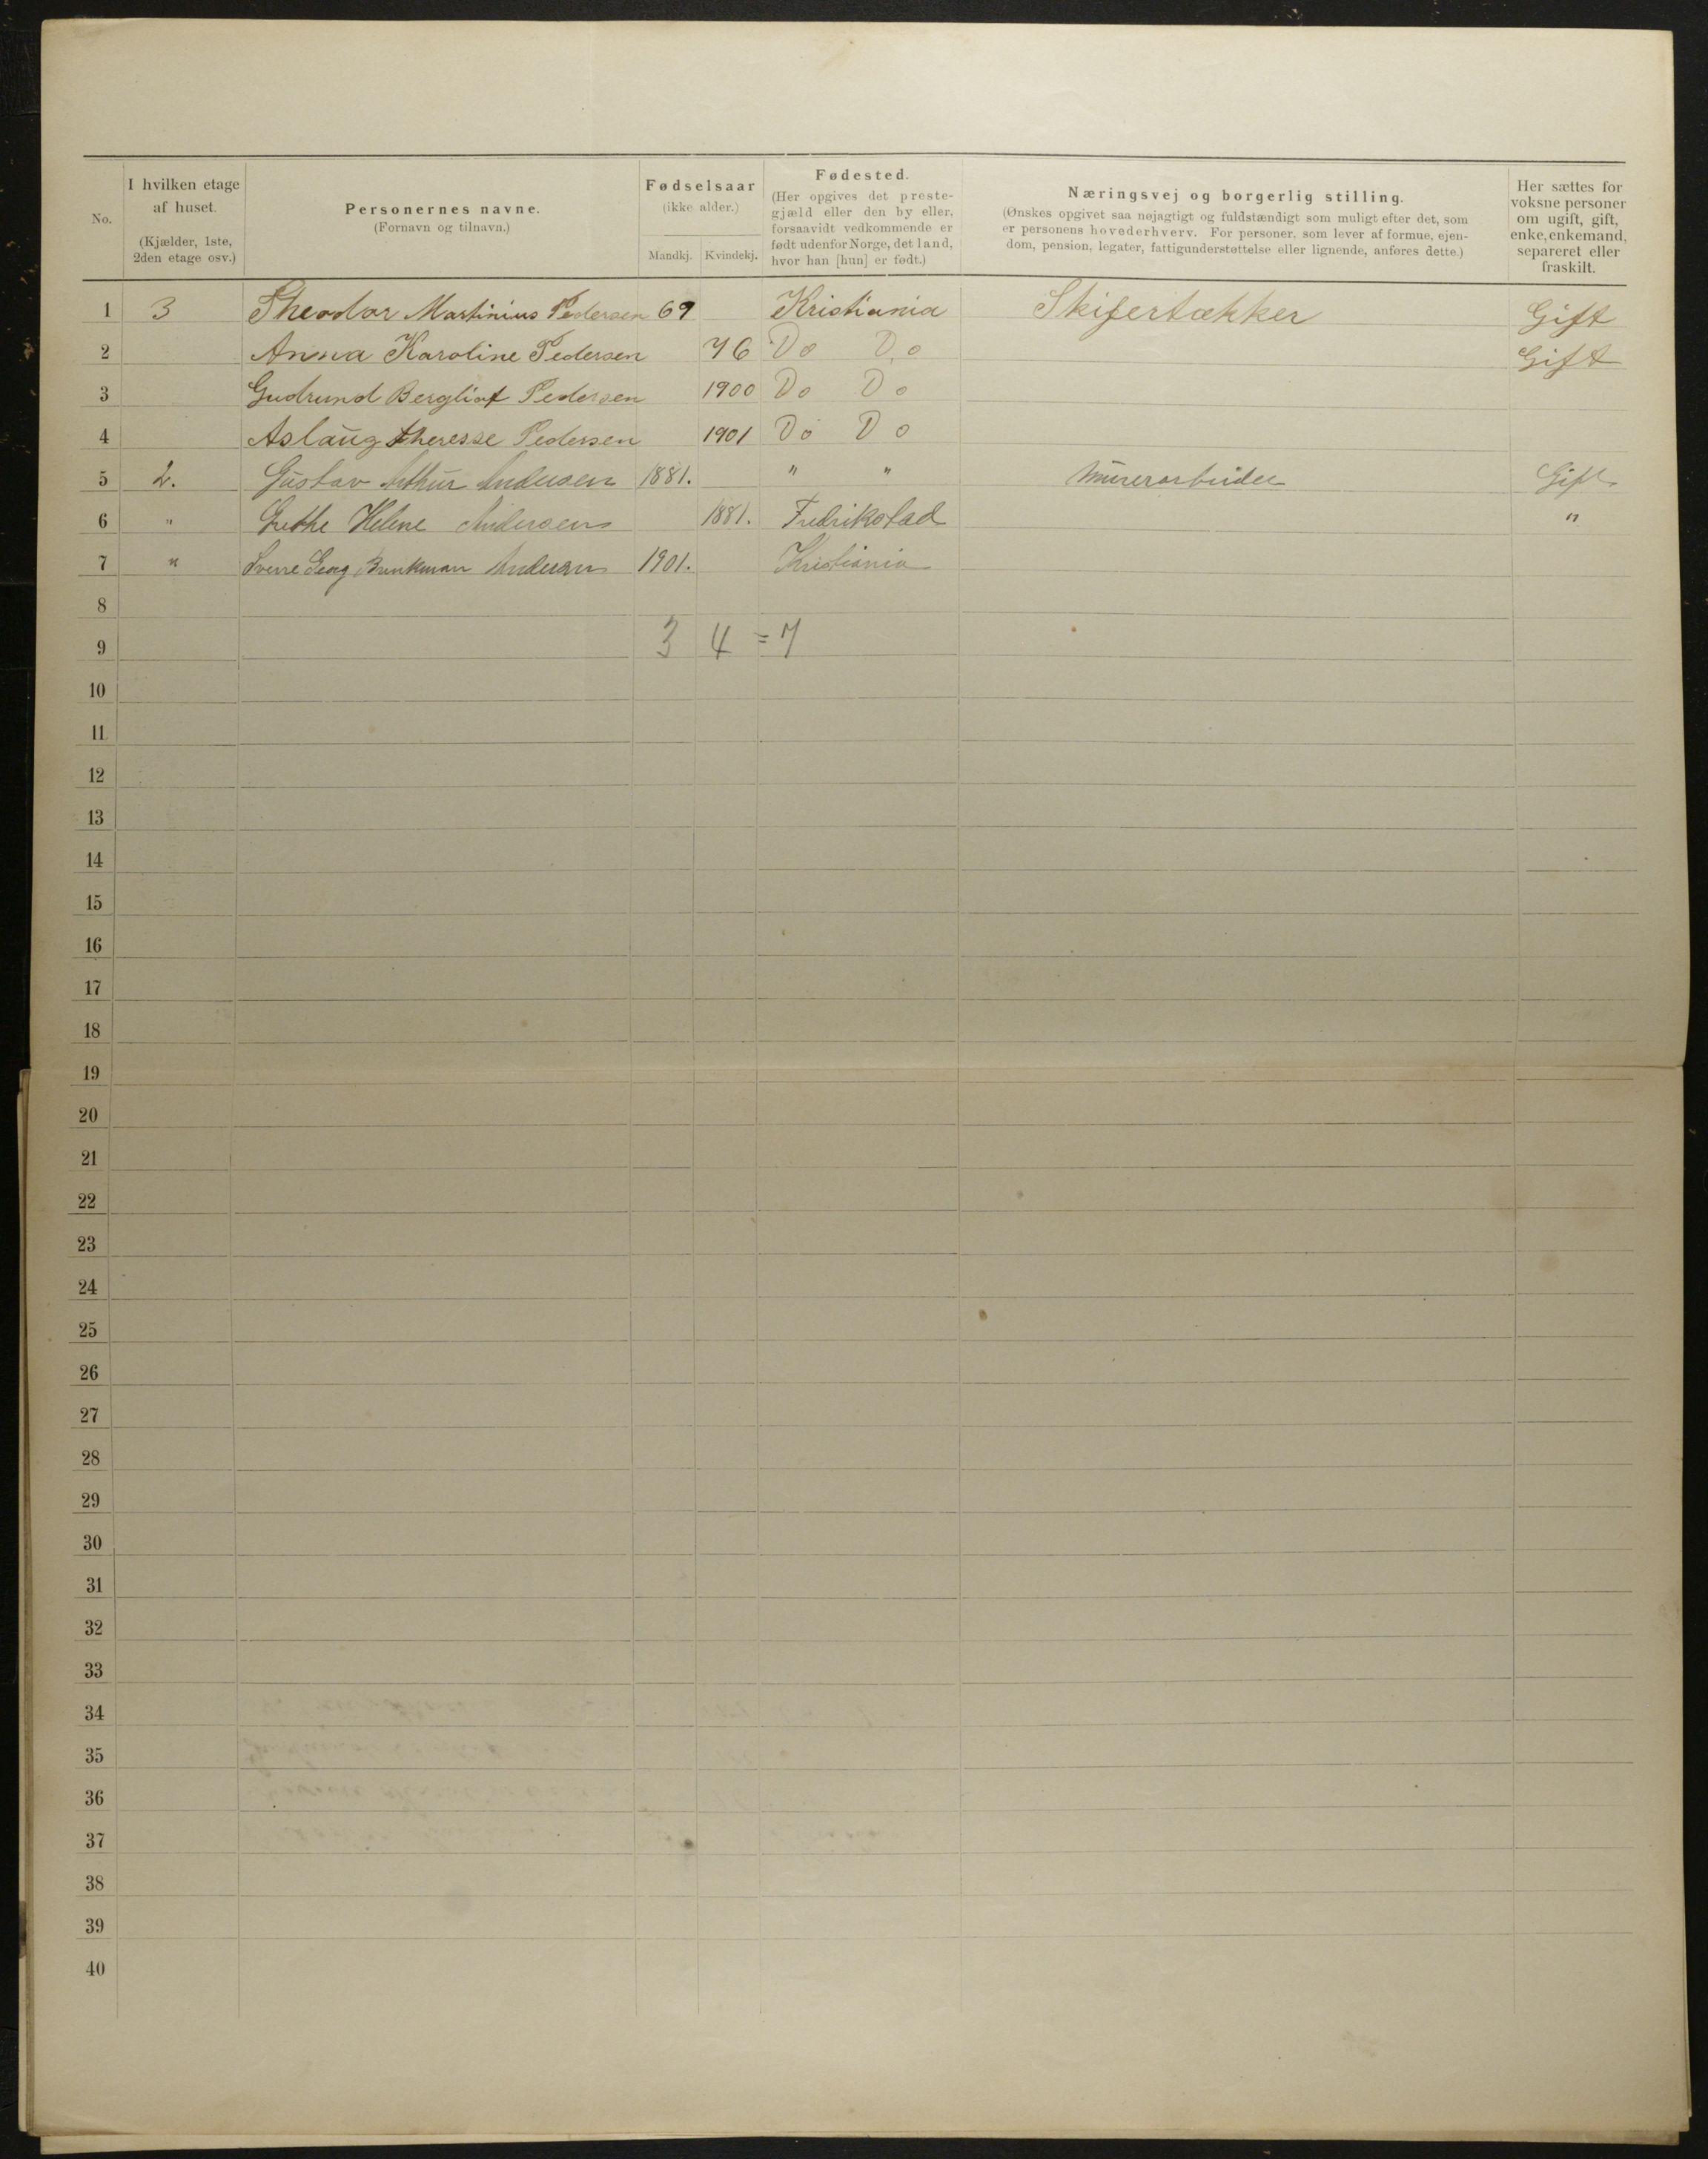 No.
I hvilken etage af huset. (Kjælder, 1ste, 2den etage osv.)
Personernes navne. (Fornavn og tilnavn.)
Fødselsaar (ikke alder.)
Mandkj. Kvindekj.
Fødested. (Her opgives det prestegjæld eller den by eller, forsaavidt vedkommende er født udenfor Norge, det land, hvor han [hun] er født.)
Næringsvej og borgerlig stilling. (Ønskes opgivet saa nøjagtigt og fuldstændigt som muligt efter det, som er personens hovederhverv. For personer, som lever af formue, ejendom, pension, legater, fattigunderstøttelse eller lignende, anføres dette.)
Her sættes for voksne personer om ugift, gift, enke, enkemand, separeret eller fraskilt.
1 3 Theodor Martinius Pedersen 69 Kristiania Skifertækker Gift
2 Anna Karoline Pedersen 76 Do Do Gift
3 Gudrund Bergliot Pedersen 1900 Do Do
4 Aslaug Theresse Pedersen 1901 Do Do
5 2. Gustav Arthur Andersen 1881. " " Murerarbeider Gift
6 " Grethe Helene Andersen 1881. Fredrikstad "
7 " Sverre Georg Brinkman Andersen 1901. Kristiania
8
9 3 4 = 7
10
11
12
13
14
15
16
17
18
19
20
21
22
23
24
25
26
27
28
29
30
31
32
33
34
35
36
37
38
39
40